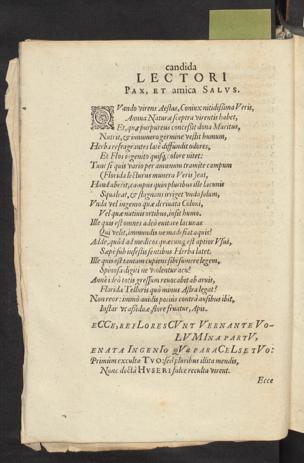 candida
LECTORI
PAX, ET amica SALVS.
QVando virens Aestas, Coniux nitidissima Veris,
Annua Naturæ sceptra virentis habet,
Et, quæ purpureus concessit dona Maritus,
Nutrit, & innumero germine vestit humum,
Herba refragrantes latè diffundit odores,
Et Flos ingenito quisq; colore nitet:
Tunc si quis vario per amœnum tramite campum
(Florida lecturus munera Veris) eat,
Haud aberit, campus quin pluribus ille lacunis
Squaleat, & stagnans irriget unda solum,
Vnda vel ingenio quæ derivata Coloni,
Vel quæ nativis ortibus, insit humo.
Ille quis est omnes adeò euitare lacunas
Qui velit, immundis ne madefiat aquis?
Adde, quòd ad medicos quæcunq; est aptior Vsus,
Sæpè sub infestis sentibus Herba latet.
Ille quis est tantam cupiens sibi sumere legem,
Spinosa digiti ne violentur acu?
Anne ideò totis gressum revocabit ab arvis,
Florida Telluris quò minus Astra legat?
Non reor: immò auidis potiùs contra ausibus ibit,
Instar vt assiduæ, flore fruatur, Apis.
ECCE, REFLORESCVNT VERNANTE VO-
LVMINA PARTV,
ENATA INGENIO QVÆ PARACELSE TVO:
Primùm exculta TVO: sed pluribus illita mendis,
Nunc doctâ HVSERI falce reculta virent.
Ecce